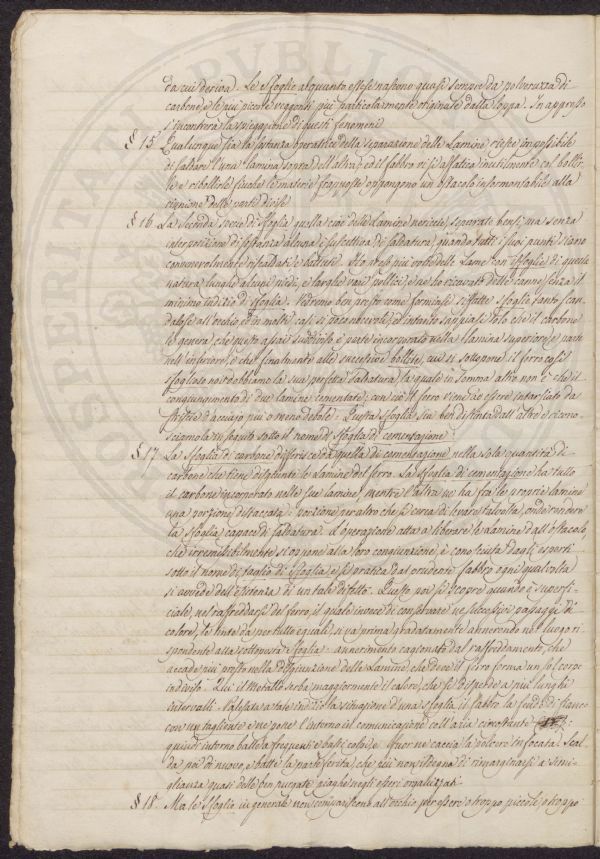 da cui deriva. Le sfoglie alquanto estese nascono quasi sempre da polveruzza di
carbone, e le più piccole veggonsi più particolarmente originate dalla loppa. In appresso
s'incontrerà la spiegazione di questi fenomeni.
§ 15. Qualunque sia la sostanza operatrice della separazione delle Lamine riesce impossibile
di saldare l'una lamina sopra dell'altra, ed il fabbro vi si affatica inutilmente col batter-
le e ribollirle si le materie frapposte oppongono un ostacolo insormontabile alla
riunione delle parti divise
§ 16. La seconda specie di sfoglia quella cioè delle Lamine vericcie, separate bensì, ma senza
interposizione di sostanza alcuna è suscettiva di saldatura, quando tutti i suoi punti siano
convenevolmente riscaldati e battuti. Ho visto più volte delle Lame con isfoglie di questa
natura lunghe alcuni piedi, e larghe varj pollici, e ne ho ricavate delle canne senza il
minimo indizio di sfoglia. Vedremo ben presto come forminsi siffatte sfoglie tanto scan-
dalose all'occhio ed in molti casi sì poco nocevoli, ed intanto sappiasi solo che il carbone
le genera, che questo assai suddiviso è parte incorporato nella lamina superiore, e parte
nell'inferiore, e che finalmente alle successive bollite, cui si sottopone, il ferro così
sfogliato non dobbiamo la sua perfetta saldatura, la quale in somma altro non è che il
congiungimento di due lamine cementate, con ciò il ferro viene ad essere intarsiato da
striscie d'acciajo più o meno debole. Questa sfoglia sia ben distinta dall'altre e ricono-
sciamola in seguito sotto il nome di sfoglia di cementazione.
§ 17. La sfoglia di carbone differisce da quella di cementazione nella sola quantità di
carbone che tiene disgiunte le lamine del ferro. La sfoglia di cementazione ha tutto
il carbone incorporato nelle sue lamine, mentre l'altra ne ha fra le proprie lamine
una porzione distaccata: porzione per altro che si cerca di levare talvolta, onde rendere
la sfoglia capace di saldatura. L'operazione atta a liberare le lamine dall'ostacolo,
che irremissibilmente si oppone alla loro congiunzione, è conosciuta dagli esperti
sotto il nome di taglio di sfoglia, e si pratica dal prudente fabbro ogni qualvolta
si avvede dell'esistenza di un tale difetto. Questo poi si scopre quando è superfi-
ciale, nel raffreddarsi del ferro, il quale invece di conservare ne' successivi passaggi di
colore, le tinte da per tutto eguali, si va prima gradatamente annerendo nel luogo ri-
spondente alla sottoposta sfoglia: annerimento cagionato dal raffreddamento, che
accade più presto nella disgiunzione della Lamina che dove il ferro forma un sol corpo
indiviso. Qui il metallo serba maggiormente il calore, che si disperde a più lunghi
intervalli. Palesata a tale indizio la situazione d'una sfoglia, il fabbro la fende di fianco
con un tagliate e ne pone l'interno in comunicazione coll'aria circostante
quindi intorno batte a frequenti e bassi colpi, e fuor ne caccia la polvere infocata. Scal-
da poi di nuovo, e batte la parte ferita, che più non isdegna di rimarginarsi a simi-
glianza quasi delle ben purgate piaghe negli esseri organizzati.
§ 18. Ma le sfoglie in generale non compariscono all'occhio per essere o troppo piccole, o troppo